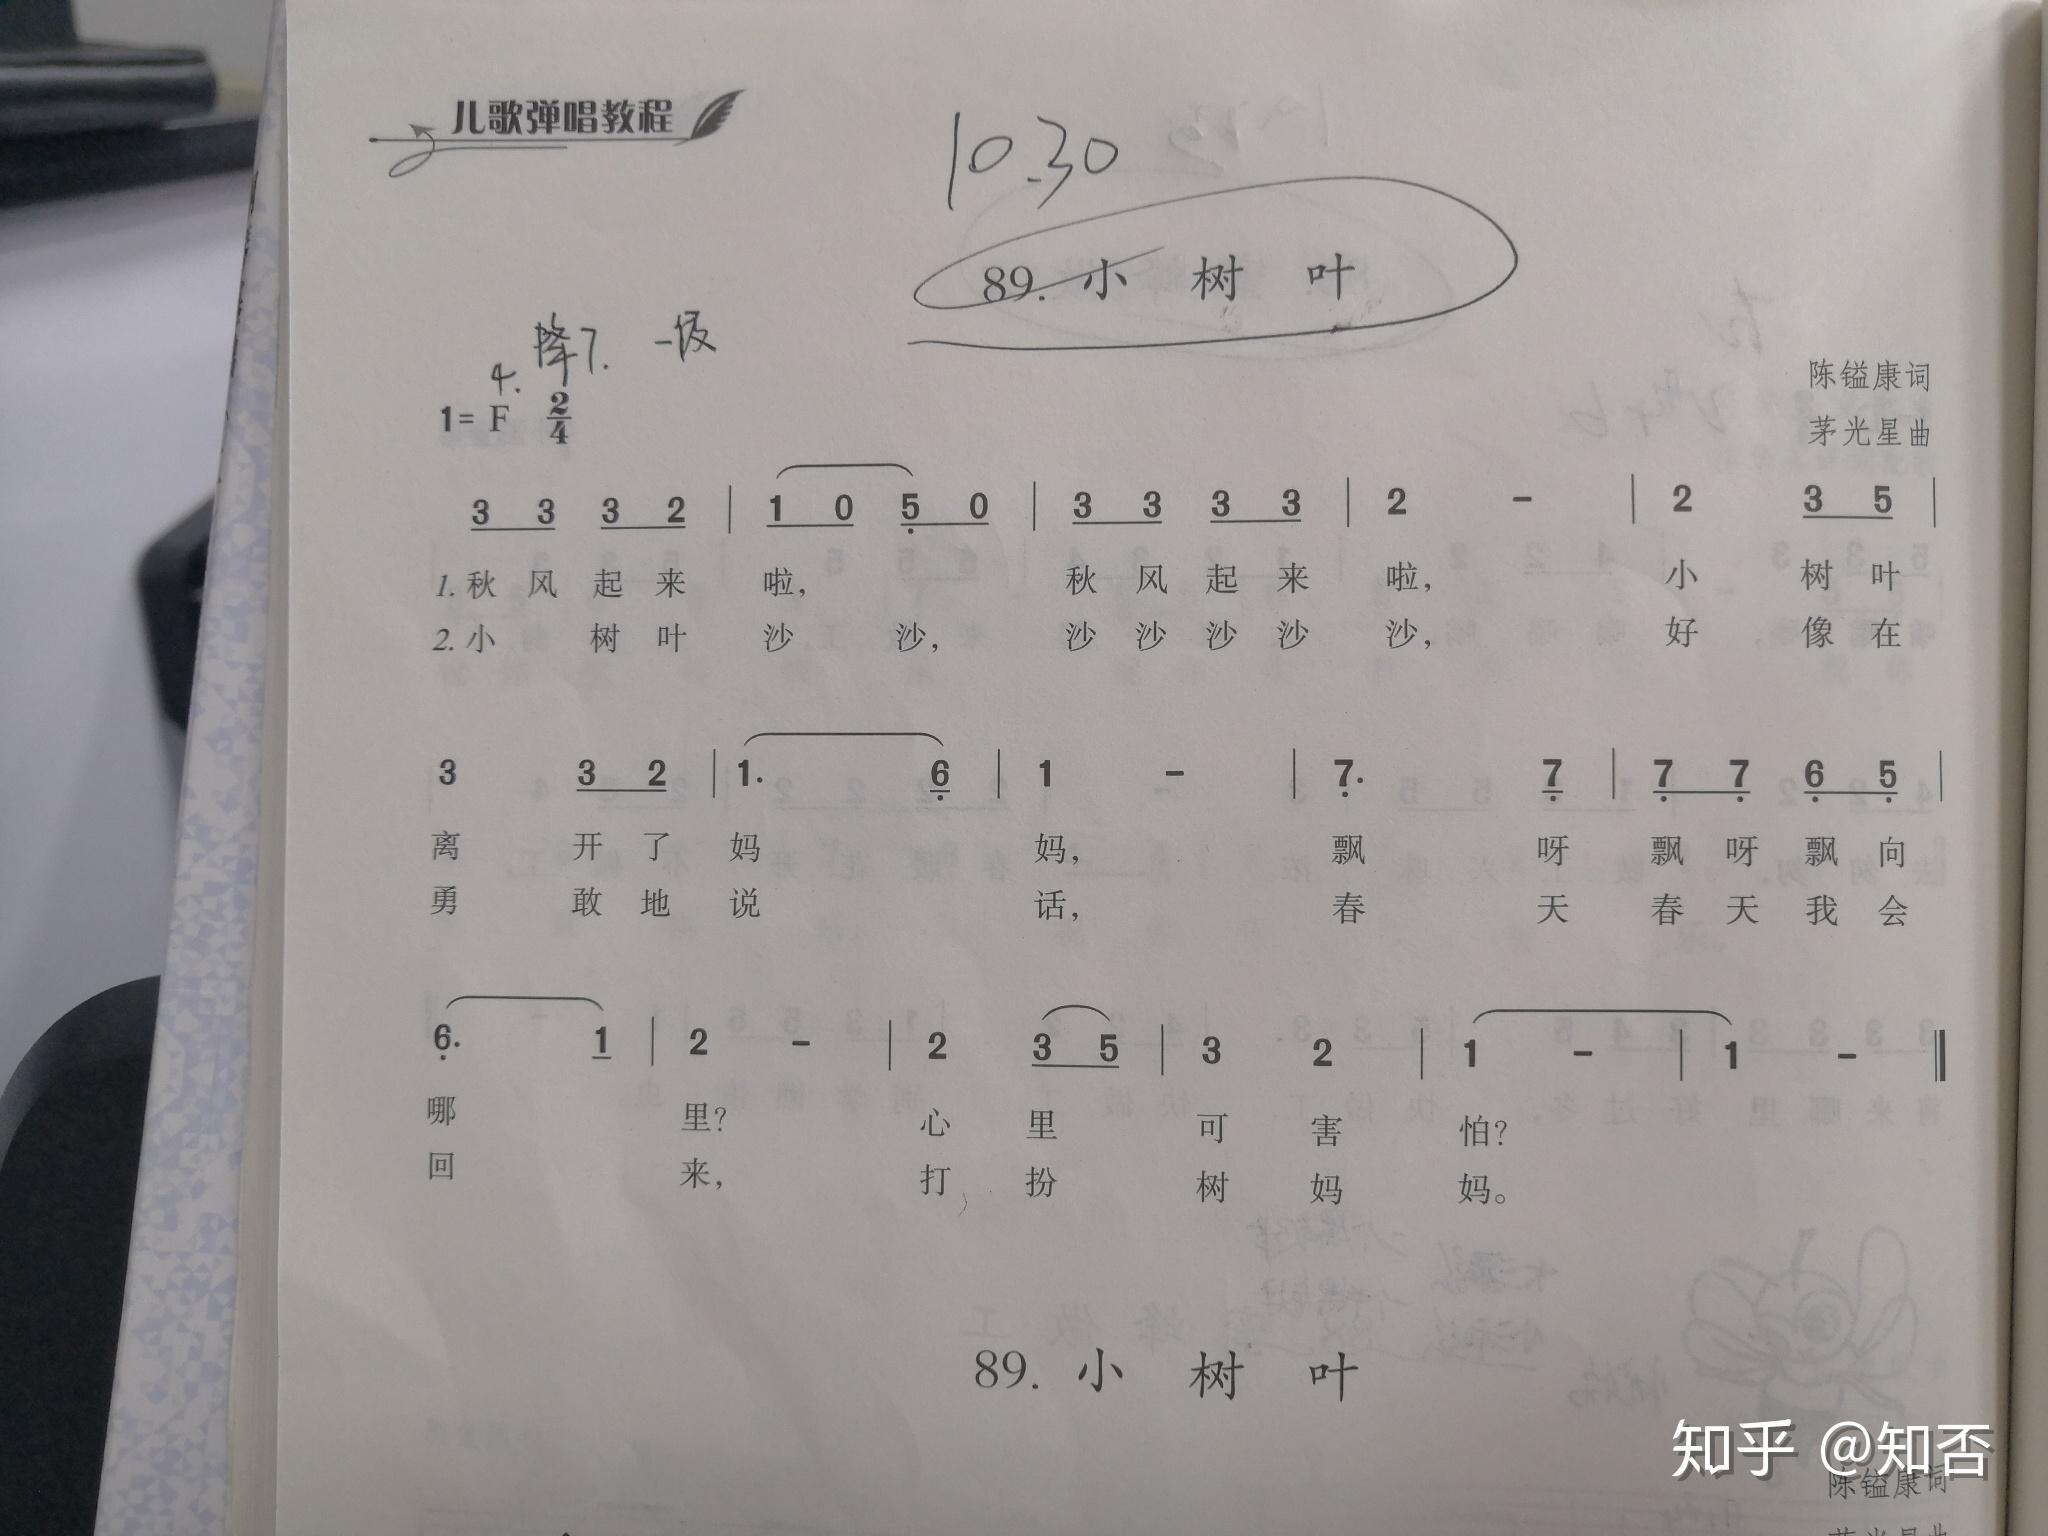 儿歌弹唱教程
10.30
89. 小 树 叶
4. 降7. 一级
1= F 2/4
陈镒康词
茅光星曲
3 3 3 2 | 1 0 5 0 | 3 3 3 3 | 2 - | 2 3 5 |
1. 秋 风 起 来 啦， 秋 风 起 来 啦， 小 树 叶
2. 小 树 叶 沙 沙， 沙 沙 沙 沙 沙， 好 像 在
3 3 2 | 1. 6 | 1 - | 7. 7 | 7 7 6 5 |
离 开 了 妈 妈， 飘 呀 飘 呀 飘 向
勇 敢 地 说 话， 春 天 春 天 我 会
6. 1 | 2 - | 2 3 5 | 3 2 | 1 - | 1 - ‖
哪 里？ 心 里 可 害 怕？
回 来， 打 扮 树 妈 妈。
89. 小 树 叶
知乎 @知否
陈镒康词
茅光星曲